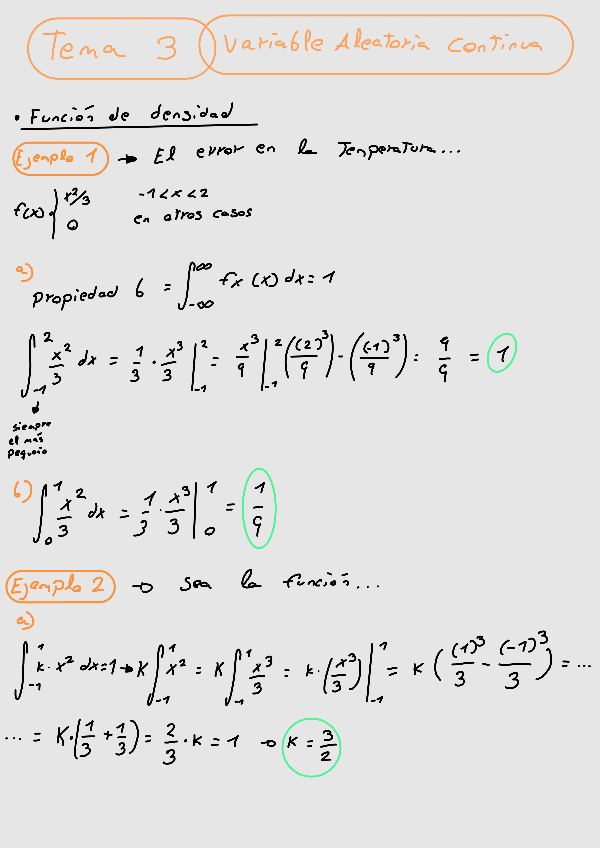 Tema 3 Variable Aleatoria Continua
• Función de densidad
Ejemplo 1 → El error en la Temperatura...
f(x) { x²/3 -1<x<2
0 en otros casos
a)
propiedad 6 = ∫_{-∞}^{∞} fx (x) dx = 1
∫_{-1}^{2} x²/3 dx = 1/3 · x³/3 |_{-1}^{2} = x³/9 |_{-1}^{2} ((2)³/9) - ((-1)³/9) = 9/9 = 1
siempre
el más
pequeño
b) ∫_{0}^{1} x²/3 dx = 1/3 · x³/3 |_{0}^{1} = 1/9
Ejemplo 2 → sea la función...
a)
∫_{-1}^{1} k · x² dx = 1 → K ∫_{-1}^{1} x² = K ∫_{-1}^{1} x³/3 = k · (x³/3) |_{-1}^{1} = K ((1)³/3 - (-1)³/3) = ...
... = K · (1/3 + 1/3) = 2/3 · K = 1 → K = 3/2